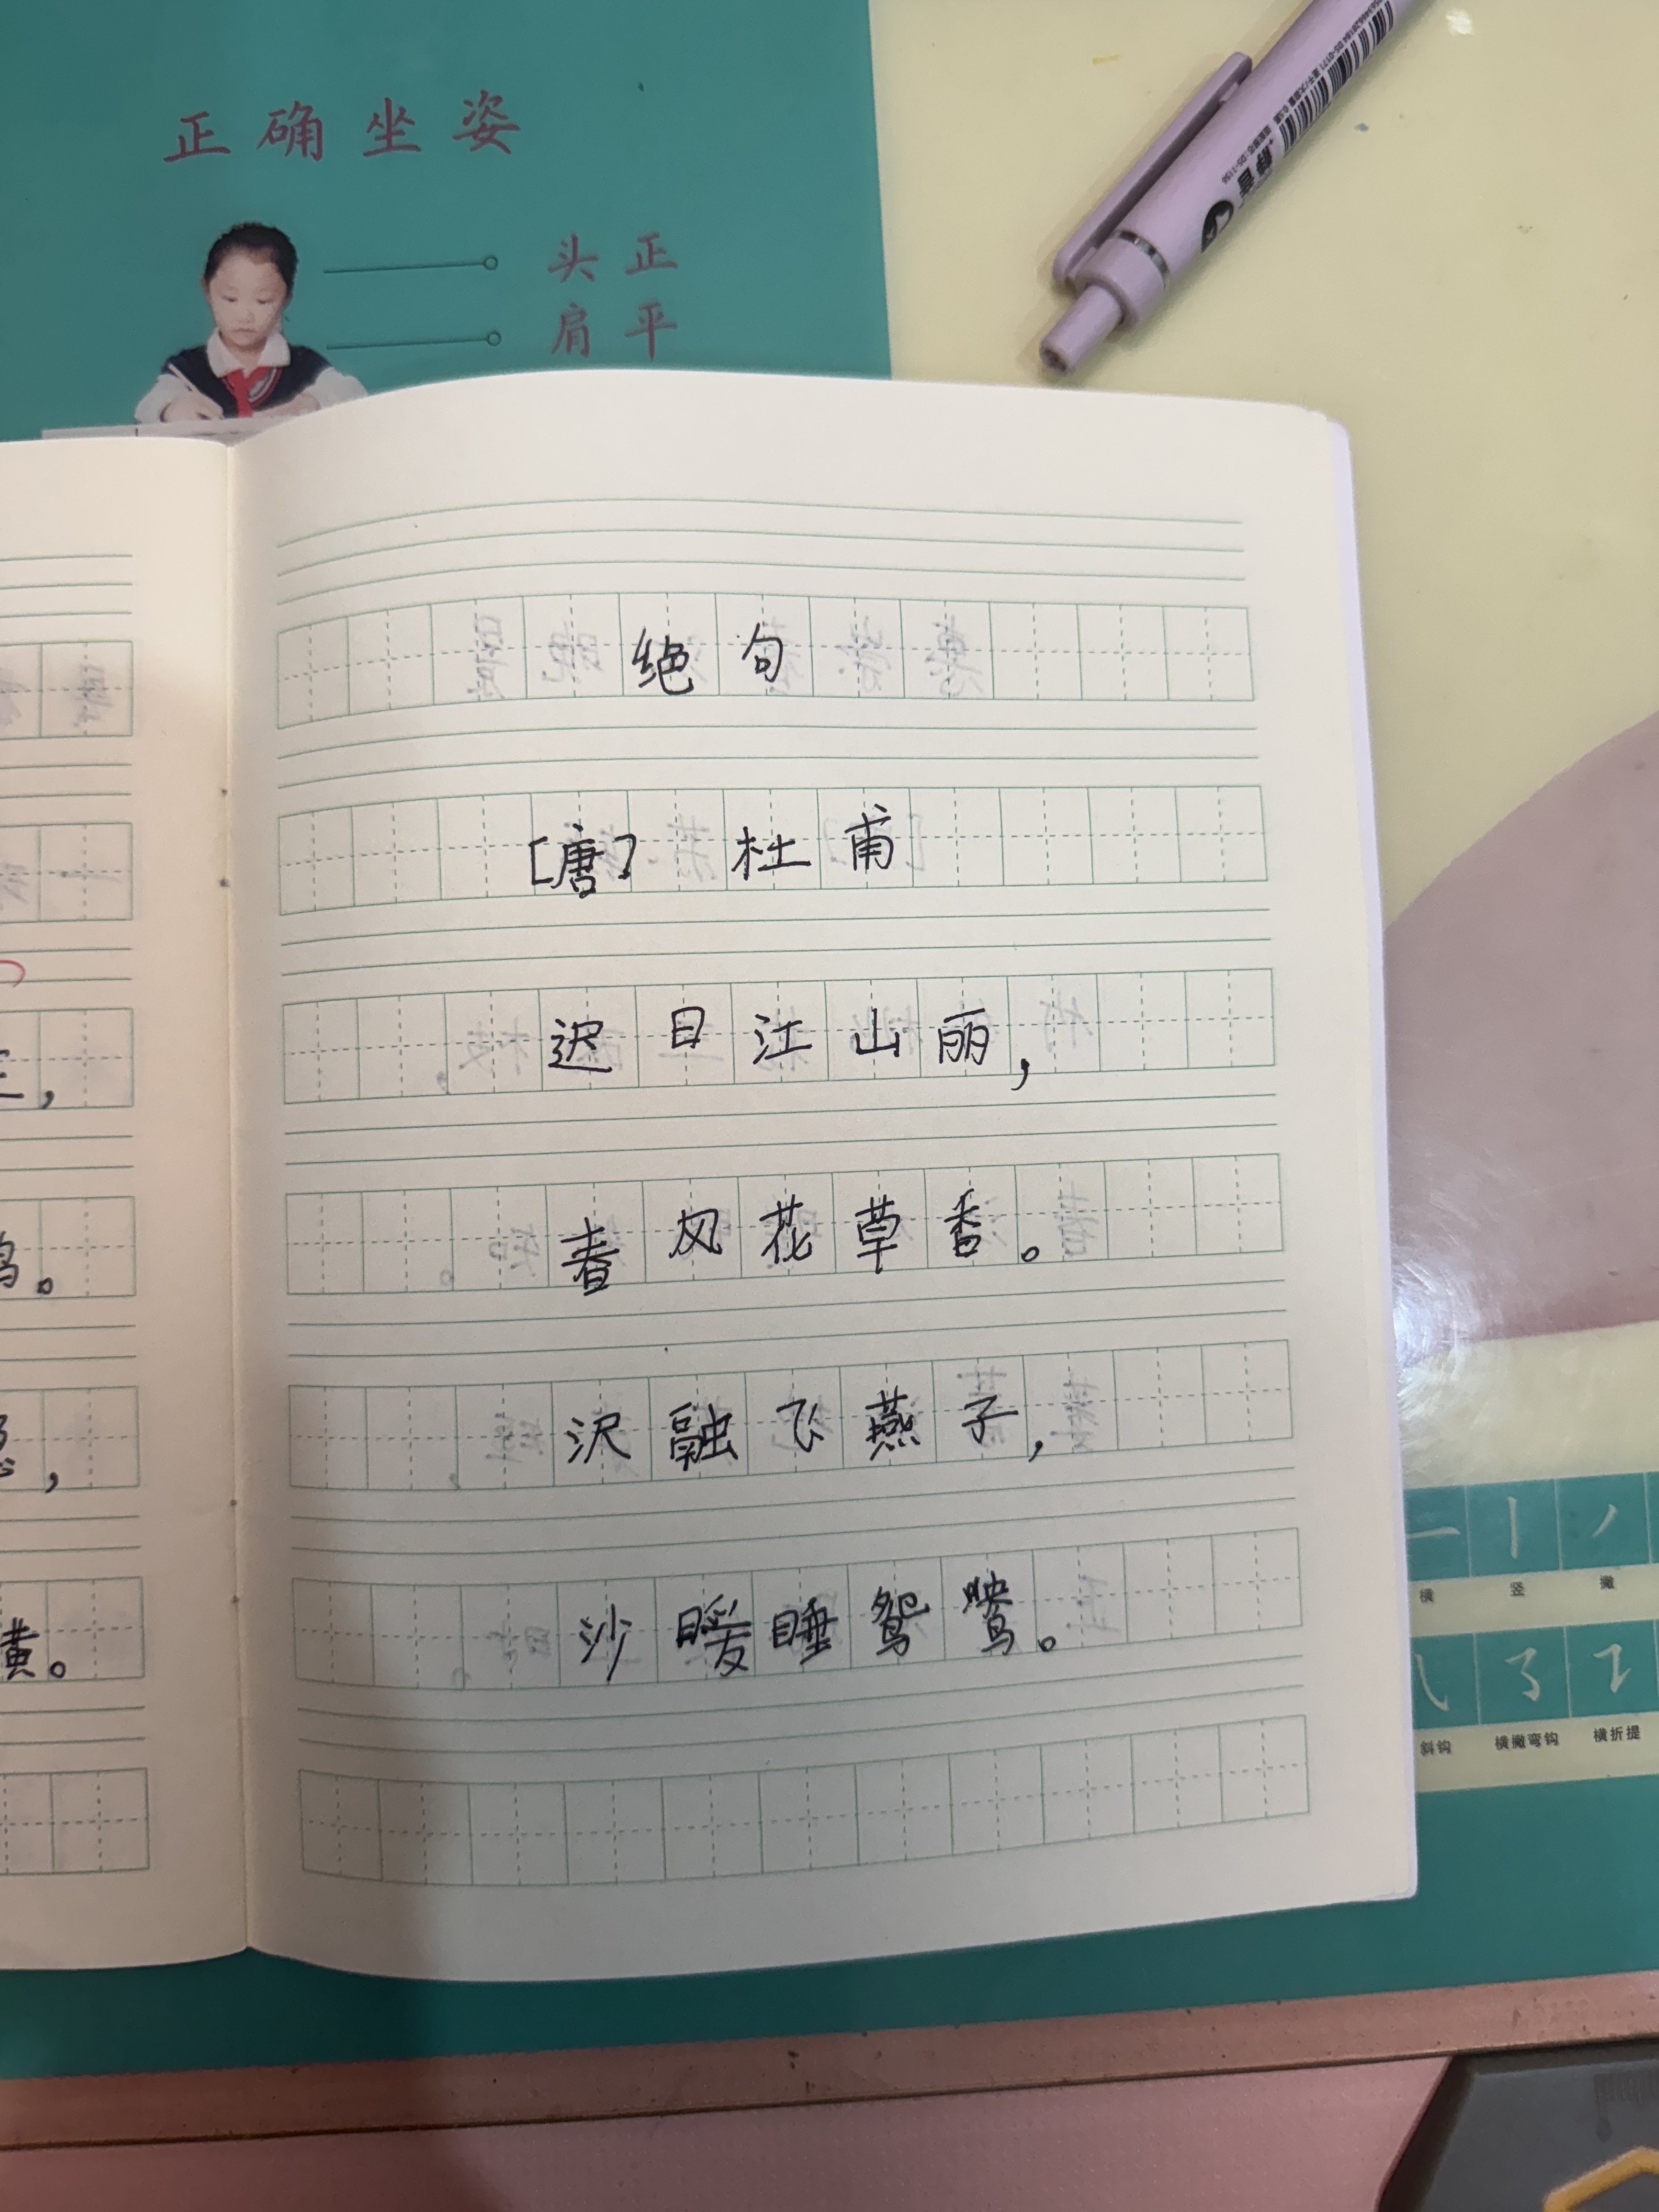 正确坐姿
头正
肩平
绝句
[唐] 杜甫
迟日江山丽，
春风花草香。
沢融飞燕子，
沙暖睡鸳鸯。
，
。
，
黄。
横 竖 撇
斜钩 横撇弯钩 横折提